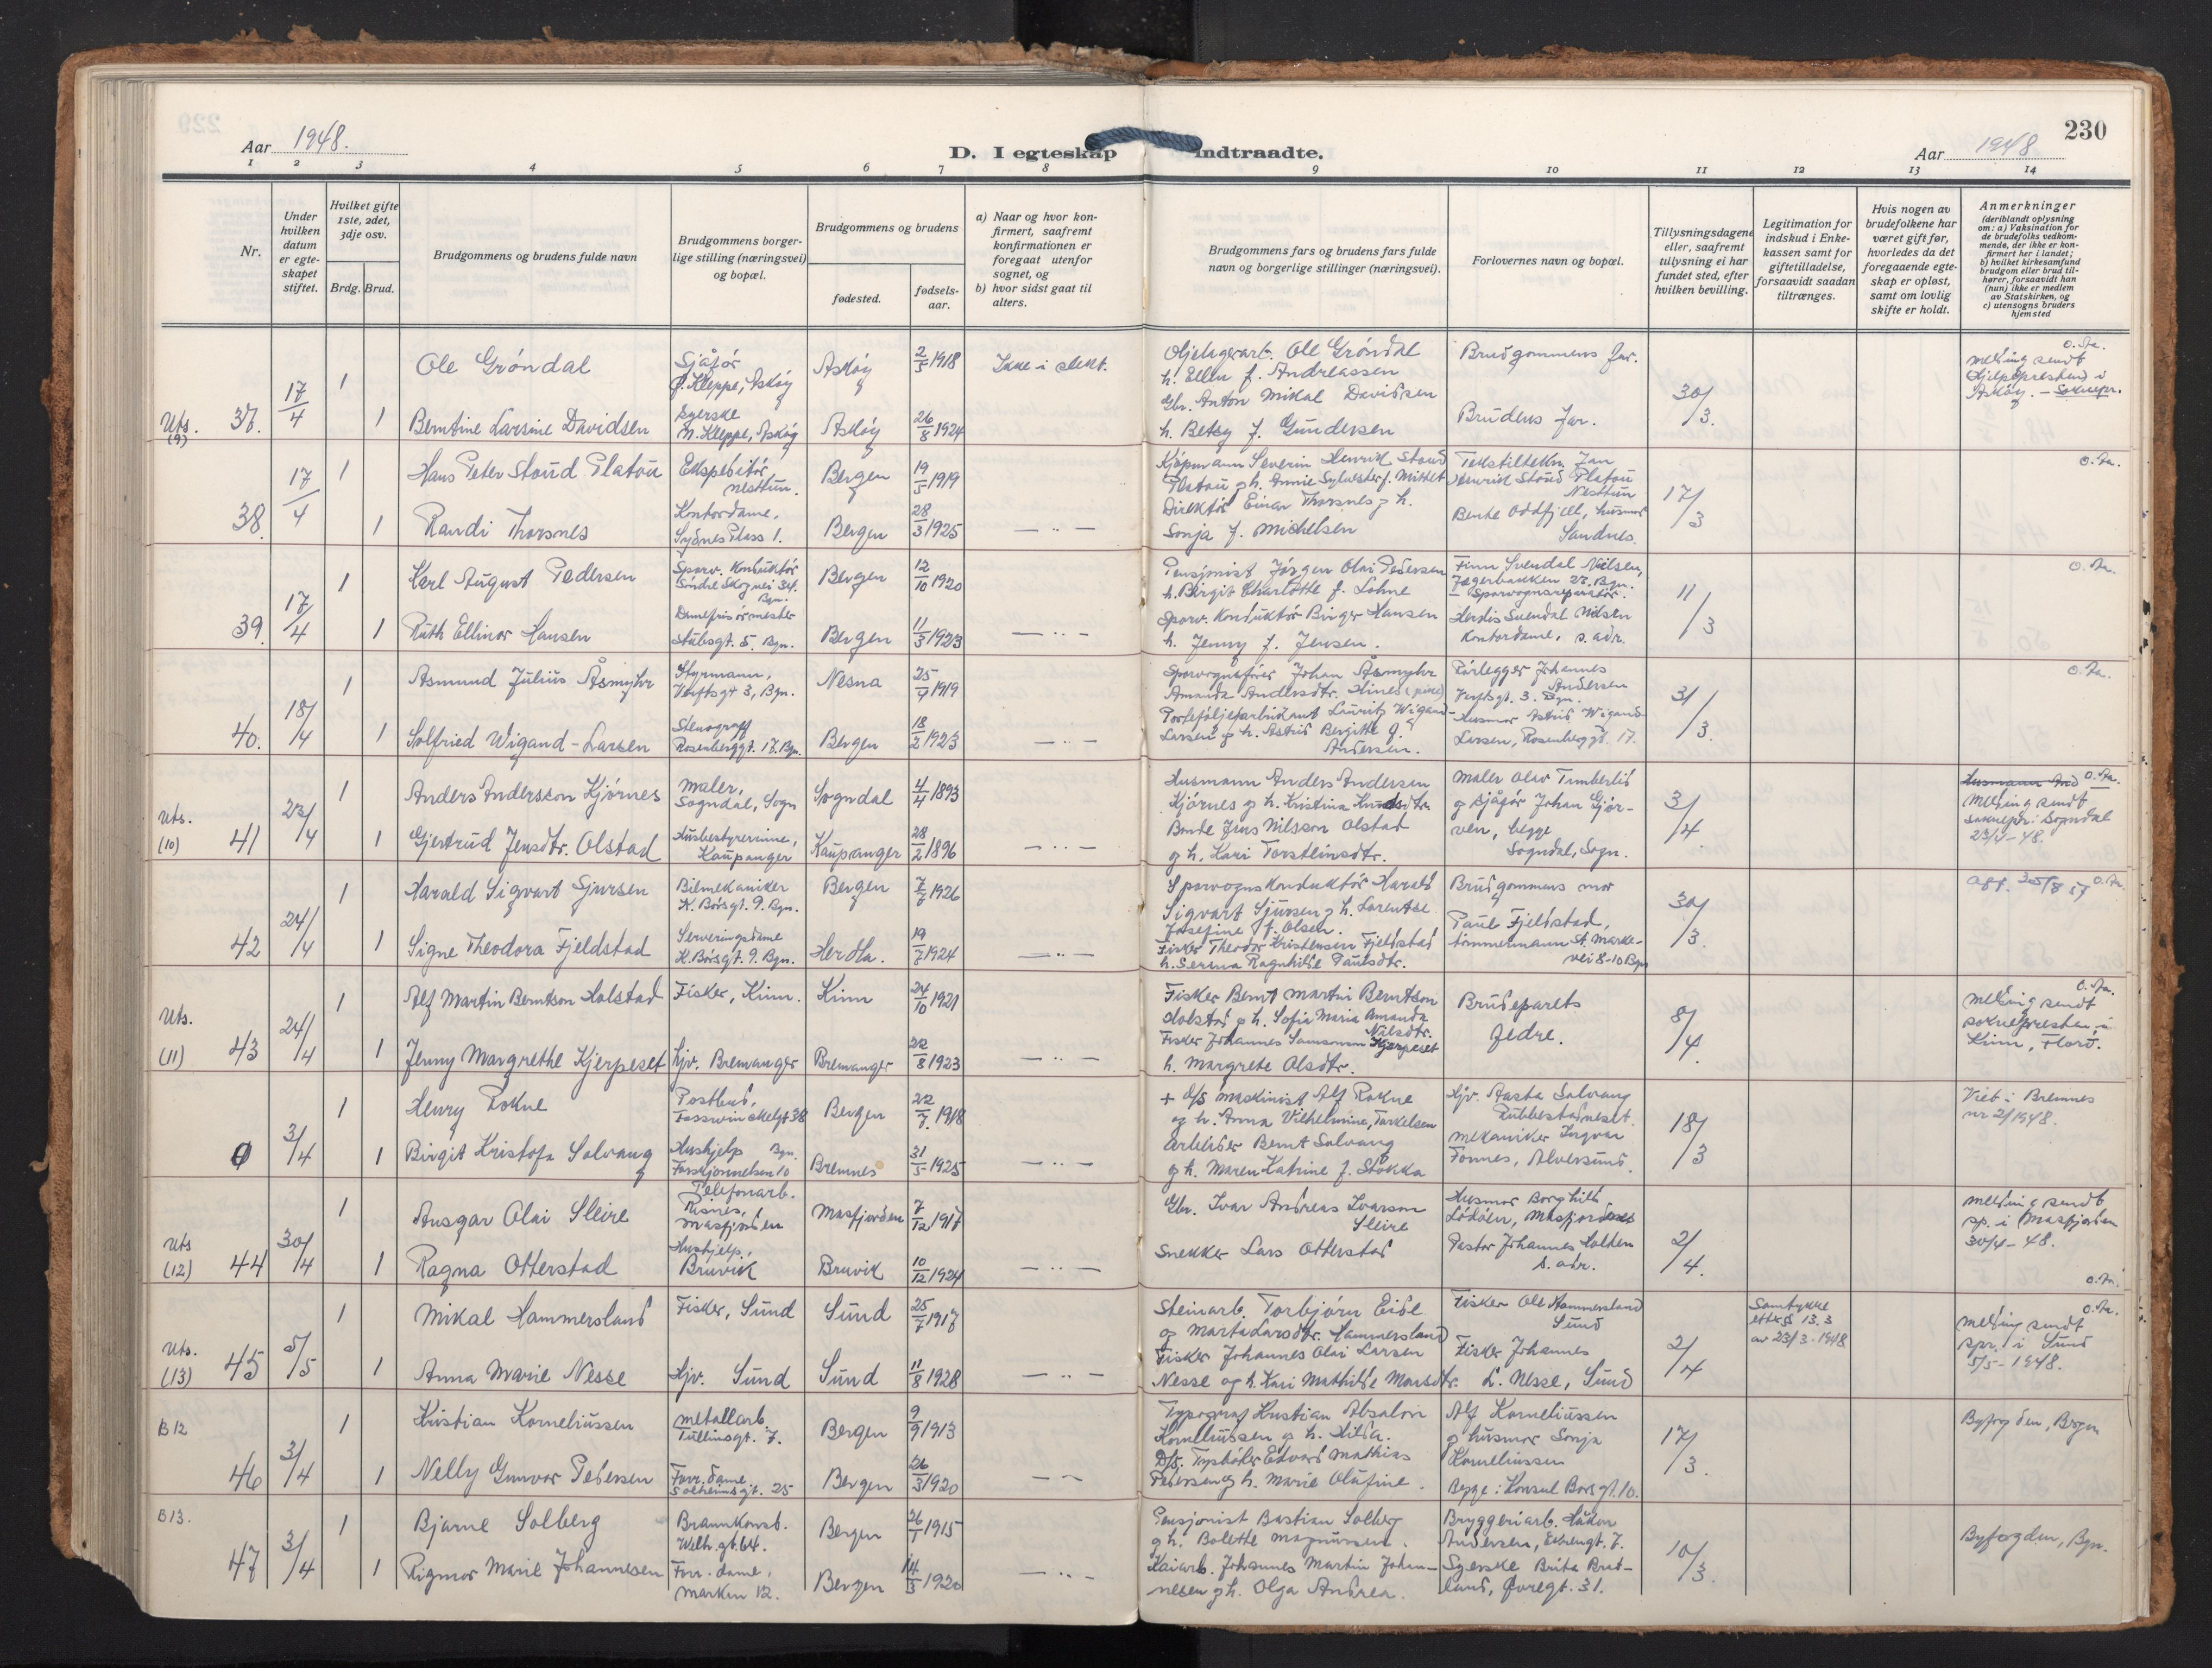 230
Aar 1948.
D. I egteskap indtraadte.
Aar 1948
1 2 3 4 5 6 7 8 9 10 11 12 13 14
Nr.
Under hvilken datum er egteskapet stiftet.
Hvilket gifte 1ste, 2det, 3dje osv.
Brdg. Brud.
Brudgommens og brudens fulde navn
Brudgommens borgerlige stilling (næringsvei) og bopæl.
Brudgommens og brudens
fødested.
fødselsaar.
a) Naar og hvor konfirmert, saafremt konfirmationen er foregaat utenfor sognet, og
b) hvor sidst gaat til alters.
Brudgommens fars og brudens fars fulde navn og borgerlige stillinger (næringsvei).
Forlovernes navn og bopæl.
Tillysningsdagene eller, saafremt tillysning ei har fundet sted, efter hvilken bevilling.
Legitimation for indskud i Enkekassen samt for giftetilladelse, forsaavidt saadan tiltrænges.
Hvis nogen av brudefolkene har været gift før, hvorledes da det foregaaende egteskap er opløst, samt om lovlig skifte er holdt.
Anmerkninger
(deriblandt oplysning om: a) Vaksination for de brudefolks vedkommende, der ikke er konfirmert her i landet;
b) hvilket kirkesamfund brudgom eller brud tilhører, forsaavidt han (hun) ikke er medlem av Statskirken, og
c) utensogns bruders hjemsted
Uts. (9) 37. 17/4 1 Ole Gröndal Sjåfør Kleppe, Askøy Askøy 2/5 1918 Ikke i slekt. Oljelagerarb. Ole Gröndal Brudgommens far. 30/3. o.fa.
h. Ellen f. Andreassen melding sendt
Gbr. Anton Mikal Davidsen Hjelpepresten i
1 Berntine Larsine Davidsen Syerske Kleppe, Askøy Askøy 26/8 1924 h. Betsy f. Gundersen Brudens far. Askøy. – Sokncpr.
38. 17/4 1 Hans Peter Stoud Platou Ekspeditør, Nesttun. Bergen 19/5 1919 Kjøpmann Severin Henrik Stoud Tekstiltekn. Jan 17/3 o.fa.
Platou og h. Annie Sylvester f. Henrik Stoud Platou Nesttun
Direktør Einar Thorsnes og h. Bente Oddfjell, husmor
1 Randi Thorsnes Kontordame, Sydnes Plass 1. Bergen 28/3 1925 — .. — Sonja f. Michelsen Sandnes.
39. 17/4 1 Karl August Pedersen Sporv. konduktør Søndre Skogvei 34. Bgn. Bergen 12/10 1920 Pensjonist Jørgen Olai Pedersen Finn Svendal Nielsen, 11/3 o.fa.
h. Birgit Charlotte f. Lohne Jægerbakken 27. Bgn. Sporvognsreparatør.
Sporv. konduktør Birger Hansen Herdis Svendal Nielsen
1 Ruth Ellinor Hansen Damefrisørmester Stølsgt. 5. Bgn. Bergen 11/3 1923 — .. — h. Jenny f. Jensen. kontordame, s. adr.
40. 18/4 1 Asmund Julius Åsmyhr Styrmann, Verftsgt 3, Bgn. Nesna 25/9 1919 Sporvognsfører Johan Åsmyhr Rørlegger Johannes 31/3. o.fa.
Amanda Andersdtr. Hines (pike) Andersen Verftsgt. 3. Bgn.
Porteføljefabrikant Lauritz Wigand- Husmor Astrid Wigand-
1 Solfried Wigand-Larsen Stenograf Rosenberggt. 17. Bgn. Bergen 18/2 1923 — .. — Larsen og h. Astrid Bergitte f. Andersen. Larsen, Rosenberggt. 17.
Uts. (10) 41 23/4 1 Anders Andersson Kjörnes Maler, Sogndal, Sogn Sogndal 4/4 1893 Husmann Anders Andersen Maler Olav Timberlid 3/4. o.fa.
Kjörnes og h. Kristina Knudsdtr. og sjåfør Johan Gjør- melding sendt
Bonde Jens Nilsson Olstad ven, begge soknepr. i Sogndal
1 Gjertrud Jensdtr. Olstad Husbestyrerinne, Kaupanger Kaupanger 28/2 1896 — .. — og h. Kari Torsteinsdtr. Sogndal, Sogn. 23/4-48.
42 24/4 1 Harald Sigvart Sjursen Bilmekaniker K. Børsgt. 9. Bgn. Bergen 7/7 1926 Sporvognskonduktør Harald Brudgommens mor 30/3. o.fa.
Sigvart Sjursen og h. Lorentse Paul Fjeldstad,
Josefine f. Olsen. tømmermann St. Marke-
1 Signe Theodora Fjeldstad Serveringsdame K. Børsgt. 9. Bgn. Herdla. 19/7 1924 — .. — Fisker Theodor Kristensen Fjeldstad vei 8-10 Bgn
h. Serina Ragnhilde Paulsdtr.
Uts. (11) 43 24/4 1 Alf Martin Berntson Holstad Fisker, Kinn. Kinn 24/10 1921 Fisker Bernt Martin Berntson Brudeparets 8/4. o.fa.
Holstad og h. Sofia Maria Amanda Nilsdtr. fedre. melding sendt
Fisker Johannes Samsonson Kjerpeset soknepresten i
1 Jenny Margrethe Kjerpeset Hjv. Bremanger Bremanger 22/8 1923 — .. — h. Margrete Olsdtr. Kinn, Florø.
0 3/4 1 Henry Rokne Postbud, Fosswinckelsgt 38 Bgn. Bergen 22/7. 1918 + D/S maskinist Alf Rokne Hjv. Aasta Solvang 18/3 Viet i Bremnes
og h. Anna Vilhelmine, Torkelsen Rubbestadneset. nr 2/1948.
Arbeider Bernt Solvang mekaniker Ingvar
1 Birgit Kristofa Solvang Hushjelp Bremnes 31/5 1925 — .. — og h. Maren Katrine f. Stokka Fonnes, Alversund.
Uts (12) 44 30/4 1 Ansgar Olai Sleire Telefonarb. Risnes, Masfjorden Masfjorden 7/12 1917 Gbr. Ivar Andreas Ivarson Sleire Husmor Borghild 2/4. melding sendt
Masfjorden sp. i Masfjorden
1 Ragna Otterstad Hushjelp, Bruvik Bruvik 10/12 1924 — .. — Snekker Lars Otterstad Pastor Johannes Holten s. adr. 30/4-48.
o.fa.
Uts. (13) 45 5/5 1 Mikal Hammersland Fisker, Sund Sund 25/7 1917 Steinarb. Torbjørn Eide Fisker Ole Hammersland Sund 2/4 Samtykke etter § 13.3 av 23/3-1948 o.fa.
og Marta Larsdtr. Hammersland melding sendt
Fisker Johannes Olai Larsen Fisker Johannes spr. i Sund
1 Anna Marie Nesse Hjv. Sund Sund 11/8 1928 — .. — Nesse og h. Kari Mathilde Monsdtr. L. Nesse, Sund 5/5-1948.
B 12 46 3/4 1 Kristian Korneliussen metallarb. Tullinsgt. 7. Bergen 9/9 1913 Typograf Kristian Absalon Alf Korneliussen 17/3. Byfogden, Bergen
Korneliussen og h. Hilda. og husmor Sonja
Edvard Mathias Korneliussen
1 Nelly Gunvor Pedersen Forr. dame Solheimsgt. 25 Bergen 26/3 1920 — .. — Pedersen og h. Marie Olufine. Begge: Konsul Børsgt. 10.
B 13. 47 3/4 1 Bjarne Solberg Brannkonst. Welh. gt. 64. Bergen 26/1 1915 Pensjonist Bastian Solberg Bryggeriarb. Håkon 10/3. Byfogden, Bgn.
og h. Bolette Magnussen. Andersen, Eikengt. 7.
Kaiarb. Johannes Martin Johan- Syerske Brita Brud-
1 Rigmor Marie Johannesen Forr. dame, Marken 12. Bergen 14/3 1920 — .. — nesen og h. Olga Andrea. land, Øvregt. 31.